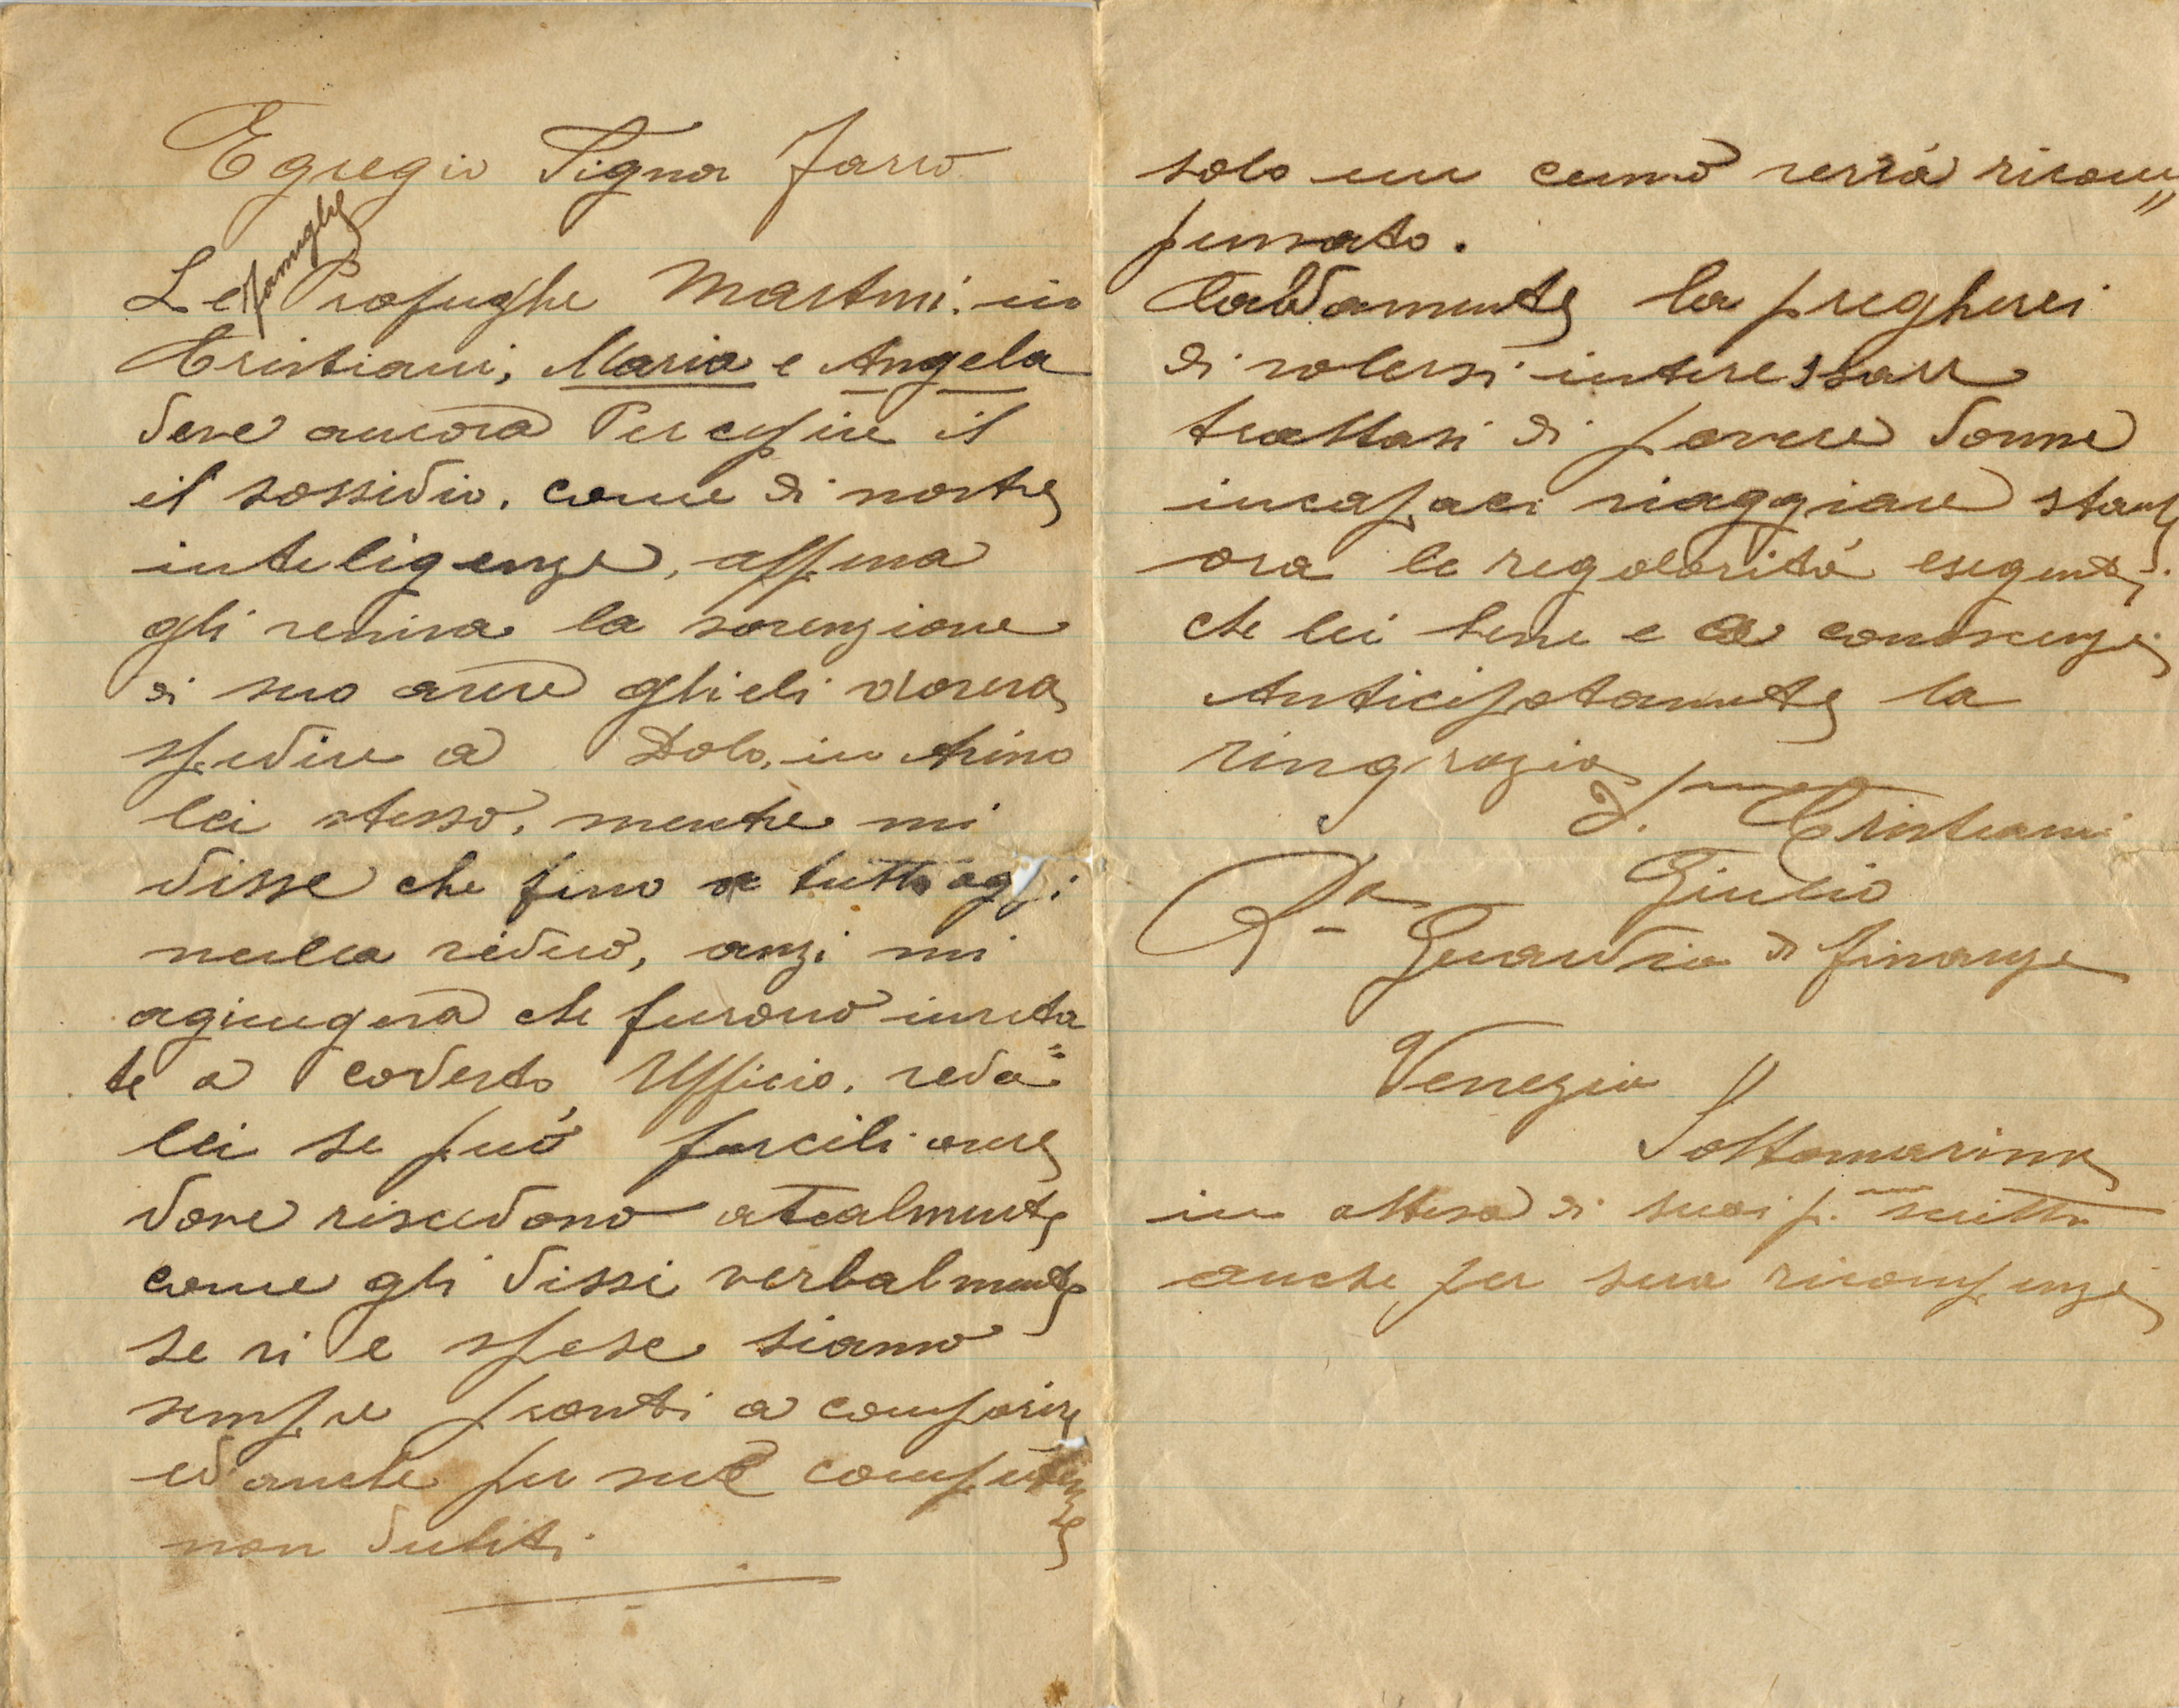 Egregio Signor Farro
famiglie
Le Profughe Martini. in
Cristiani, Maria e Angela
deve ancora Percepire il
il sossidio. come di nostre
inteligenze, appena
gli veniva la sovenzione
di suo avere ghieli doveva
spedire a Dolo, in Arino
lei stesso, mentre mi
disse che fino a tutto oggi
nulla vedeno, anzi mi
agiungera che furono invita=
te a codesto Ufficio. veda
lei se può facili avere
dove risciedono atealmente
come gli dissi verbalmente
se vi e spese siamo
sempre pronti a comparire
ed anche per sue competenze
non dubiti
solo un cenno verrà ricom"
pensato.
Caldamente la pregherei
di volersi interessare
trattasi di povere donne
incapaci viaggiare stante
ora le regolarità esegente
che lei bene e a conoscenze.
Anticipatamente la
ringrazio
Cristiani
Giulio
Ra Guardia di finanze
Venezia
Sottomarina
in attesa di suoi p. scritto
anche per sua ricompenze